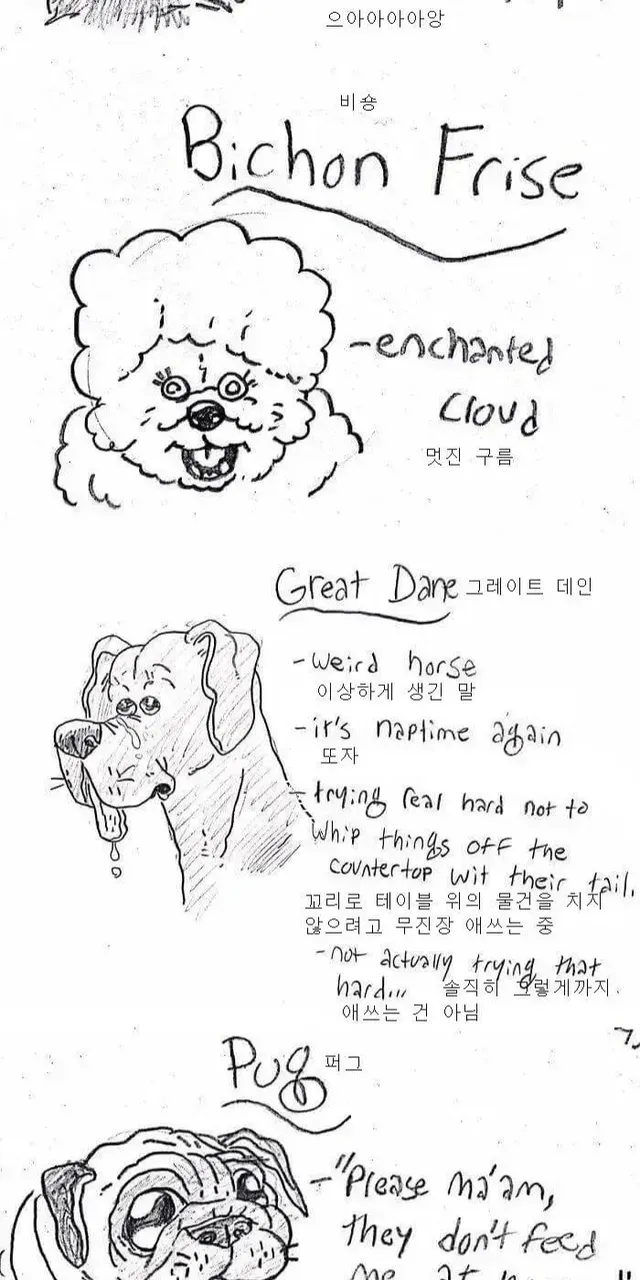 으아아아아앙
비숑
Bichon Frise
-enchanted
cloud
멋진 구름
Great Dane 그레이트 데인
-weird horse
이상하게 생긴 말
-it's naptime again
또자
-trying real hard not to
whip things off the
countertop wit their tail.
꼬리로 테이블 위의 물건을 치지
않으려고 무진장 애쓰는 중
-not actually trying that
hard... 솔직히 그렇게까지
애쓰는 건 아님
Pug 퍼그
-"Please ma'am,
they don't feed
me at